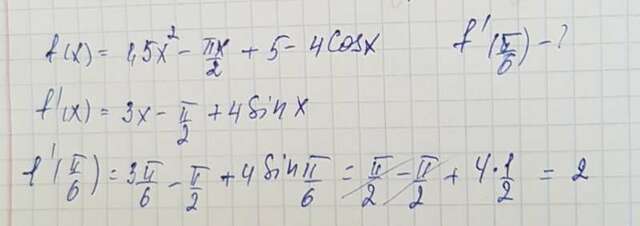 f(x) = 1,5x² - πx/2 + 5 - 4cosx f'(π/6) - ?
f'(x) = 3x - π/2 + 4sin x
f'(π/6) = 3π/6 - π/2 + 4 sin π/6 = π/2 - π/2 + 4·1/2 = 2